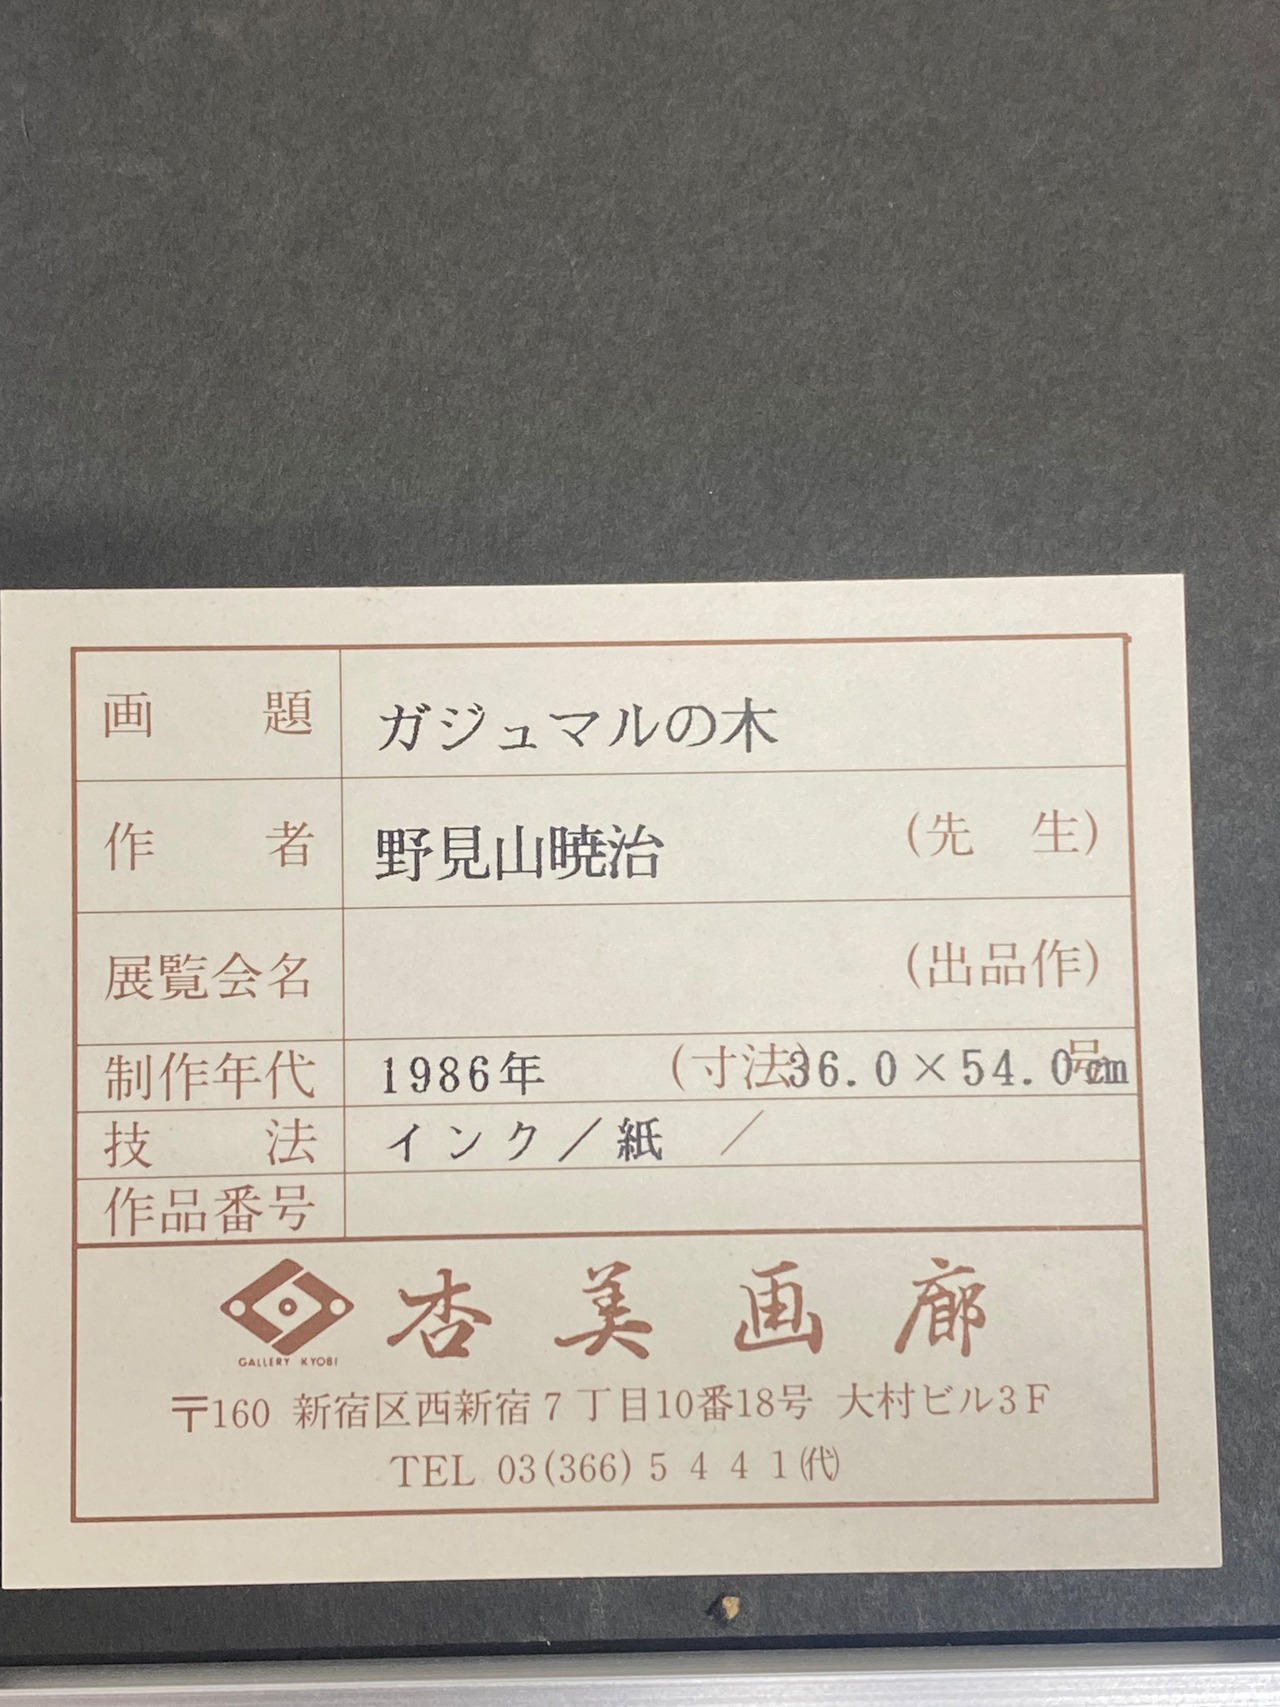 画題 ガジュマルの木
作者 野見山暁治 (先生)
展覧会名 (出品作)
制作年代 1986年 (寸法)36.0×54.0cm 号
技法 インク／紙 ／
作品番号
杏美画廊
GALLERY KYOBI
〒160 新宿区西新宿7丁目10番18号 大村ビル3F
TEL 03(366)5441(代)